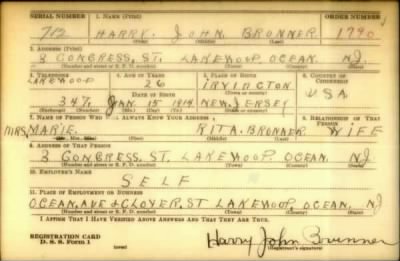 SERIAL NUMBER 1. NAME (Print) ORDER NUMBER
712 HARRY. JOHN. BRUNNER 1790
(First) (Middle) (Last)
2. ADDRESS (Print)
3 CONGRESS, ST. LAKEWOOP. OCEAN. NJ.
(Number and street or R. F. D. number) (Town) (County) (State)
3. TELEPHONE 4. AGE IN YEARS 5. PLACE OF BIRTH 6. COUNTRY OF CITIZENSHIP
LAKEWOOD 26 IRVINGTON
DATE OF BIRTH (Town or county) USA.
347. JAN. 15 1914. NEW. JERSEY
(Exchange) (Number) (Mo.) (Day) (Yr.) (State or country)
7. NAME OF PERSON WHO WILL ALWAYS KNOW YOUR ADDRESS 8. RELATIONSHIP OF THAT PERSON
MRS. MARIE. RITA. BRUNNER WIFE
(Mr., Mrs., Miss) (First) (Middle) (Last)
9. ADDRESS OF THAT PERSON
3 CONGRESS. ST. LAKEWOOP. OCEAN. NJ
(Number and street or R. F. D. number) (Town) (County) (State)
10. EMPLOYER'S NAME
SELF
11. PLACE OF EMPLOYMENT OR BUSINESS
OCEAN. AVE & CLOVER. ST LAKEWOOP. OCEAN. NJ
(Number and street or R. F. D. number) (Town) (County) (State)
I AFFIRM THAT I HAVE VERIFIED ABOVE ANSWERS AND THAT THEY ARE TRUE.
REGISTRATION CARD
D. S. S. Form 1 (over) Harry John Brunner
(Registrant's signature)